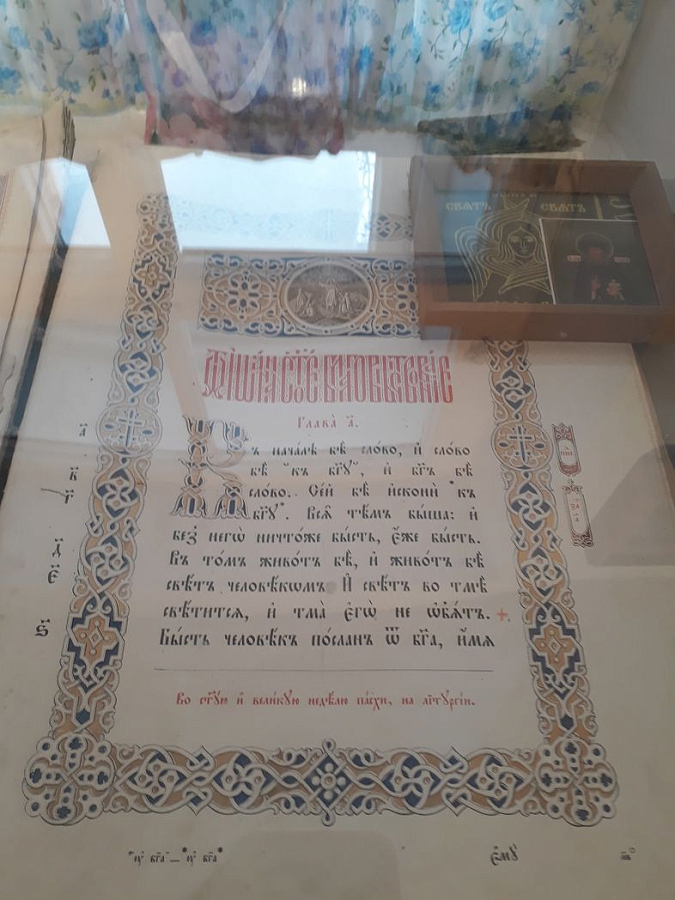 СВѦТЪ СВѦТЪ
Ѿ ІѠА́ННА СТ҃О́Е БЛАГОВѢСТВОВА́НІЕ
Глава̀ а҃.
Въ нача́лѣ бѣ̀ сло́во, и҆ сло́во
бѣ̀ *къ бг҃ꙋ*, и҆ бг҃ъ бѣ̀
сло́во. Се́й бѣ̀ и҆сконѝ *къ
бг҃ꙋ*. Всѧ̑ тѣ́мъ бы́ша: и҆
без̾ негѡ̀ ничто́же бы́сть, є҆́же бы́сть.
Въ то́мъ живо́тъ бѣ̀, и҆ живо́тъ бѣ̀
свѣ́тъ человѣ́кѡмъ. И҆ свѣ́тъ во тмѣ̀
свѣ́титсѧ, и҆ тма̀ є҆гѡ̀ не ѡ҆б̾ѧ́тъ. +
Бы́сть человѣ́къ по́сланъ ѿ бг҃а, и҆́мѧ
Во ст҃ꙋ́ю и҆ вели́кꙋю недѣ́лю па́схи, на лїтꙋргі́и.
а҃
в҃
г҃
д҃
є҃
ѕ҃
*ᲂу҆ бг҃а*—*ᲂу҆ бг҃а*
є҆мꙋ̀